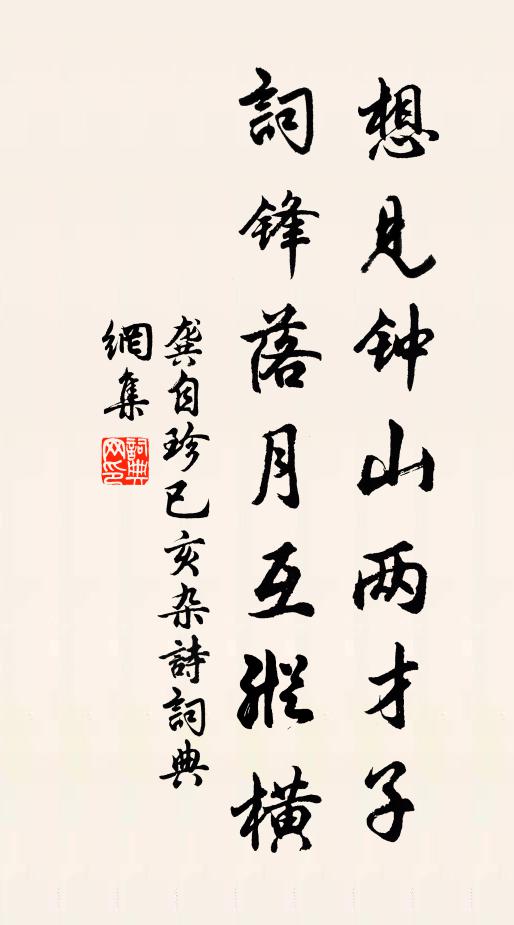 想見钟山两才子
詞锋落月互縱横
龚自珍已亥杂詩詞典
網集
詞典网印